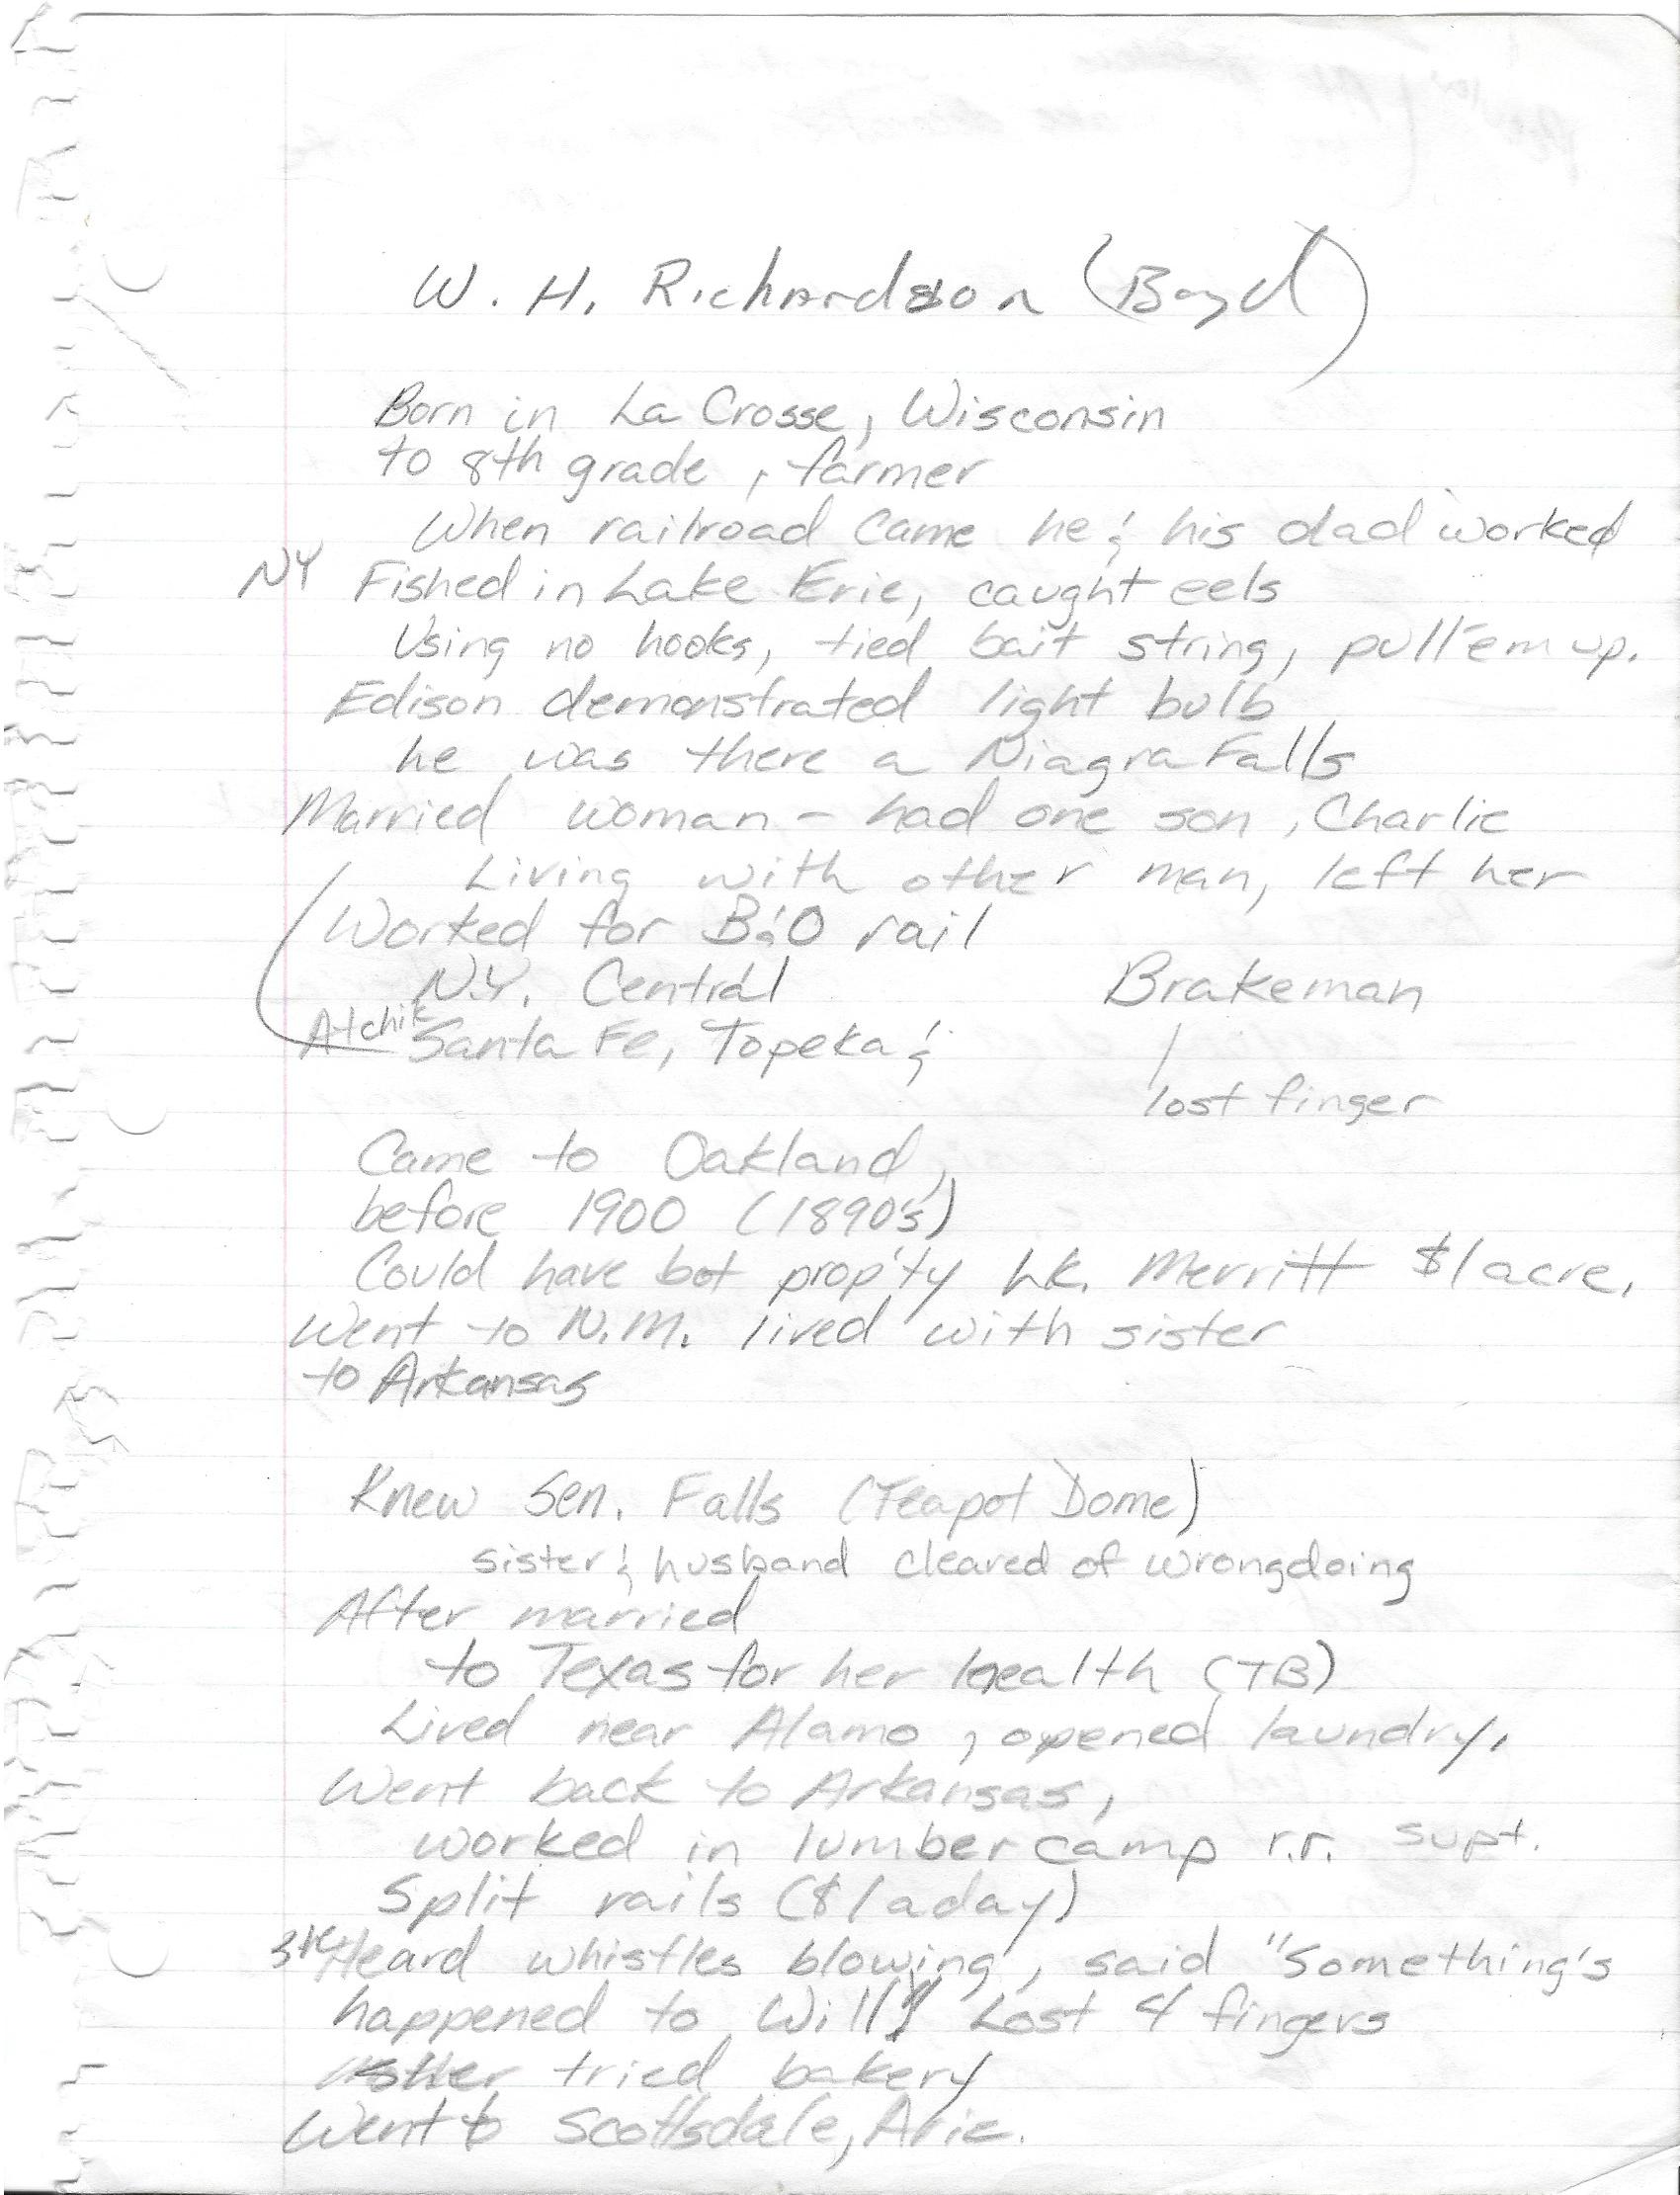 W. H. Richardson (Boyd)
Born in La Crosse, Wisconsin
to 8th grade, farmer
When railroad came he & his dad worked
NY Fished in Lake Erie, caught eels
Using no hooks, tied bait string, pull 'em up.
Edison demonstrated light bulb
he was there a Niagra Falls
Married woman - had one son, Charlie
Living with other man, left her
Worked for B&O rail
N.Y. Central Brakeman
Atchi Santa Fe, Topeka &
lost finger
Came to Oakland,
before 1900 (1890's)
Could have bot prop'ty Lk. Merritt $1 acre.
Went to N.M. lived with sister
to Arkansas
Knew Sen. Falls (Teapot Dome)
sister & husband cleared of wrongdoing
After married
to Texas for her health (TB)
Lived near Alamo, opened laundry.
Went back to Arkansas,
worked in lumber camp r.r. supt.
Split rails ($1 a day)
Heard whistles blowing, said "Something's
happened to Will" Lost 4 fingers
tried bakery
Went to Scottsdale, Ariz.